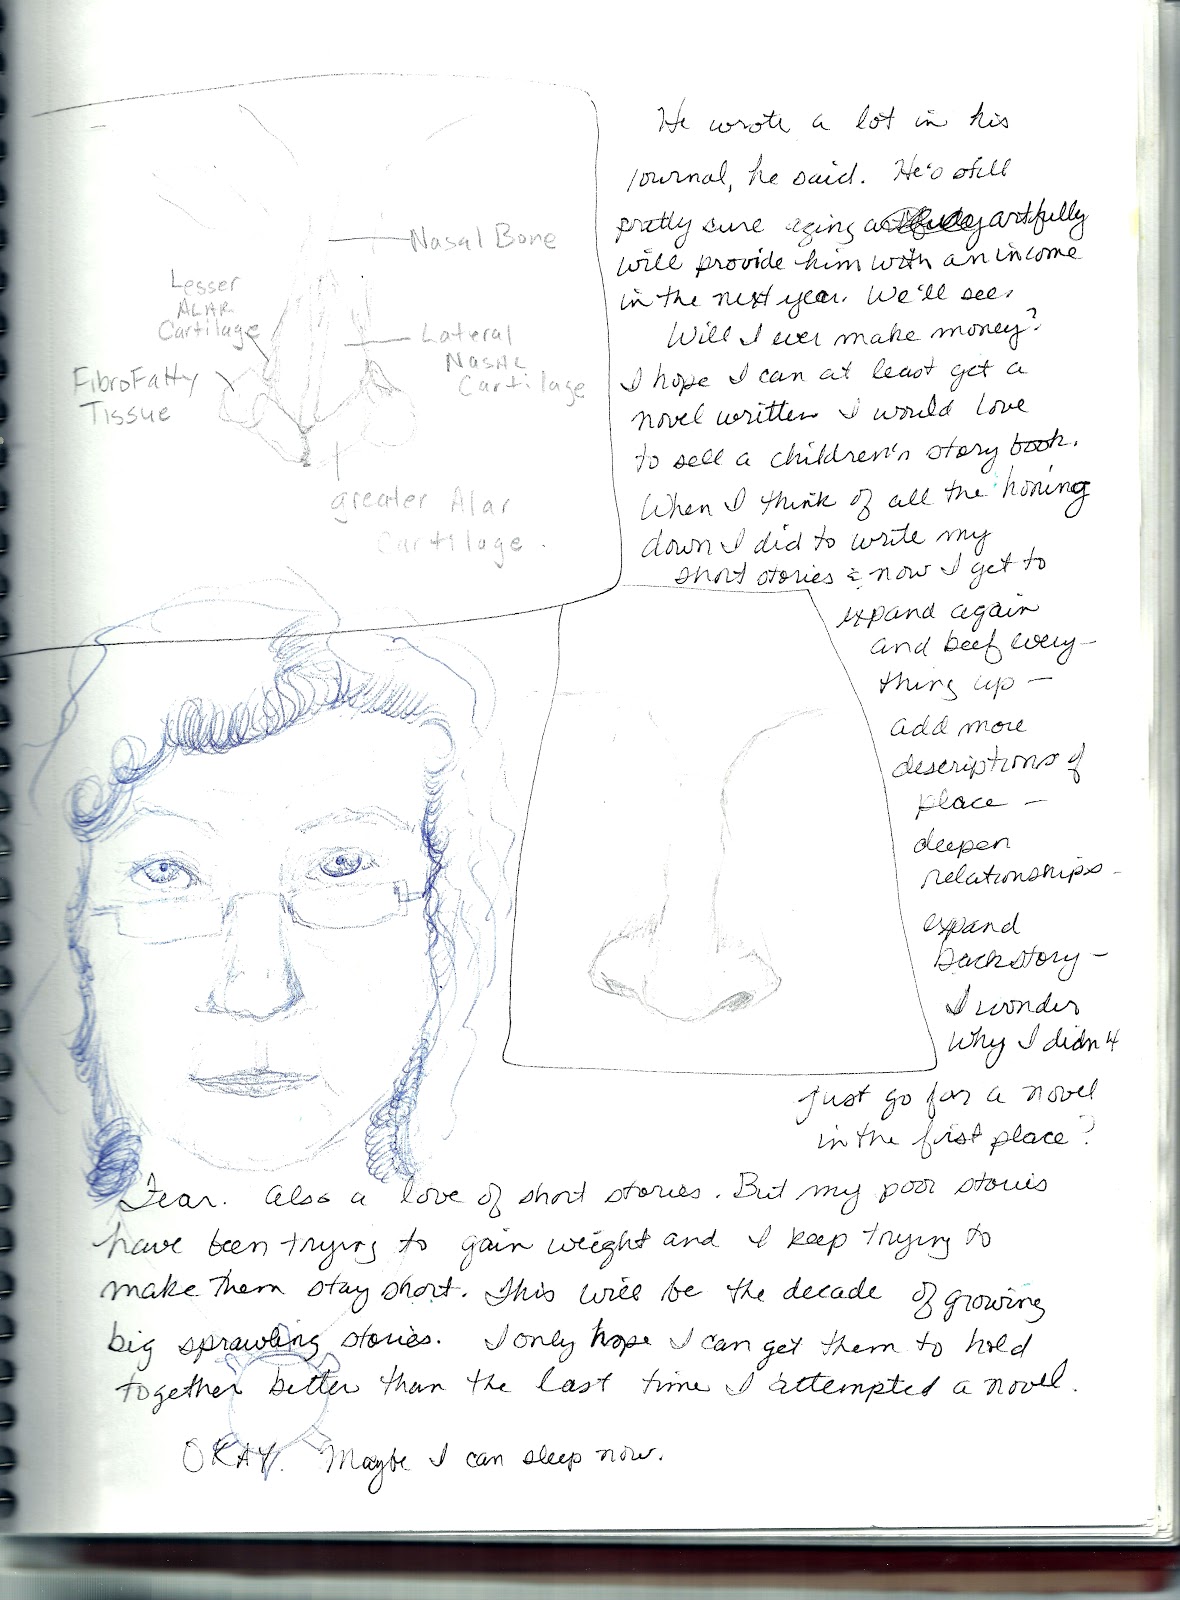 Nasal Bone
Lesser
Alar
Cartilage
Lateral
Nasal
Cartilage
FibroFatty
Tissue
greater Alar
Cartilage.
He wrote a lot in his
journal, he said. He's still
pretty sure aging artfully
will provide him with an income
in the next year. We'll see.
Will I ever make money?
I hope I can at least get a
novel written. I would love
to sell a children's story book.
When I think of all the honing
down I did to write my
short stories & now I get to
expand again
and beef every-
thing up —
add more
descriptions of
place —
deepen
relationships -
expand
backstory —
I wonder
why I didn't
just go for a novel
in the first place?
Fear. Also a love of short stories. But my poor stories
have been trying to gain weight and I keep trying to
make them stay short. This will be the decade of growing
big sprawling stories. I only hope I can get them to hold
together better than the last time I attempted a novel.
OKAY. Maybe I can sleep now.